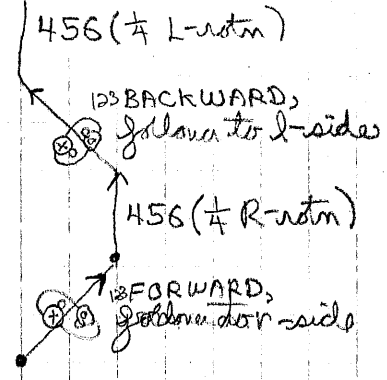 456 (1/4 L-rotn)
123 BACKWARD,
followu to l-side
456 (1/4 R-rotn)
123 FORWARD,
r-side